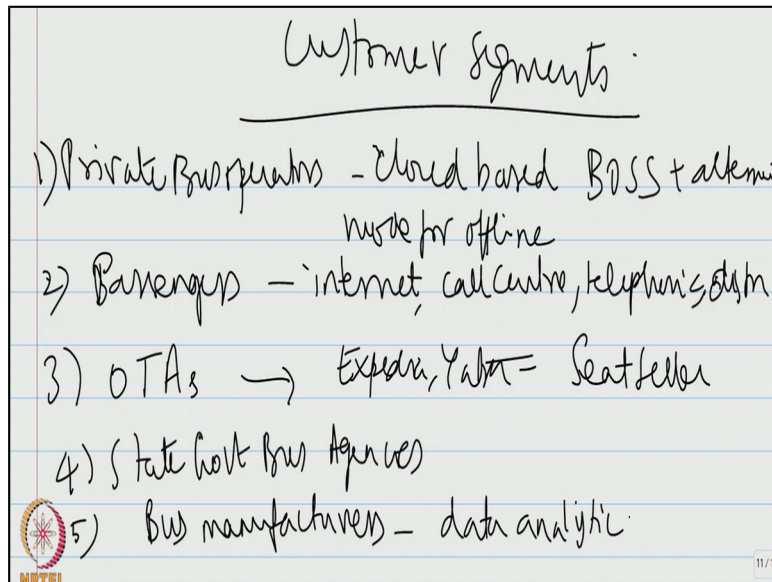 Customer Segments
1) Private Bus operators - cloud based BOSS +
mode for offline
2) Passengers - internet, call centre,
3) OTAs → Expedia, = Seat Seller
4) State Govt Bus Agences
5) Bus manufacturers - data analytic
NPTEL
11/